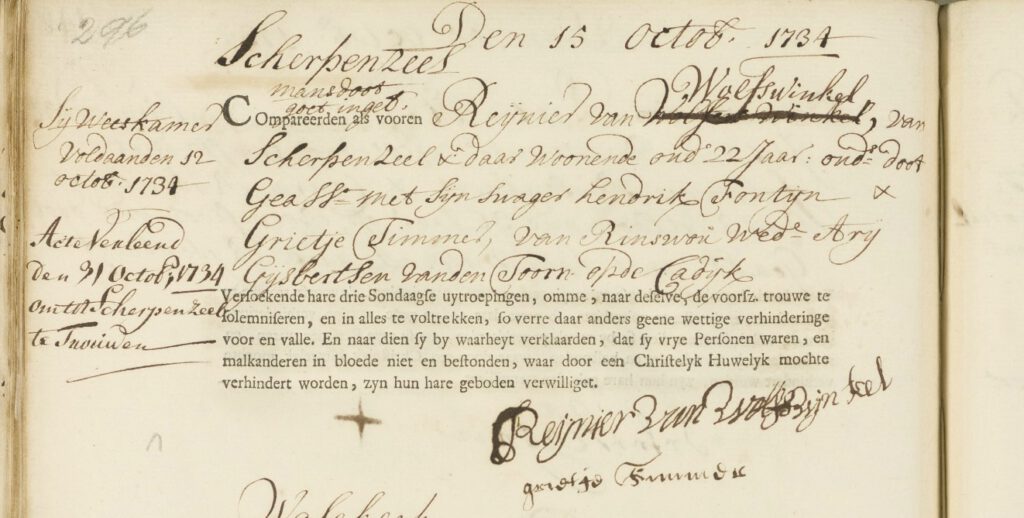 296
Den 15 Octob. 1734
Scherpenzeel
mansdoot
goet inget.
Wolfswinkel
Compareerden als vooren Reijnier van Wolfswinkel, van
Scherpenzeel & daar woonende oud 22 Jaar: ouds doot
Geasst met sijn swager hendrik Fontijn &
Grietje Timmer, van Rinswou Wede Arij
Gijsbertsen vanden Toorn op de Cadijk
Sij Weeskamer
Voldaan den 12
octob. 1734
Acte Verleend
den 31 Octob, 1734
om tot Scherpenzeel
te Trouwen
Versoekende hare drie Sondaagse uytroepingen, omme, naar deselve, de voorsz. trouwe te
solemniseren, en in alles te voltrekken, so verre daar anders geene wettige verhinderinge
voor en valle. En naar dien sy by waarheyt verklaarden, dat sy vrye Personen waren, en
malkanderen in bloede niet en bestonden, waar door een Christelyk Huwelyk mochte
verhindert worden, zyn hun hare geboden verwilliget.
Reijnier van
grietje Timmer